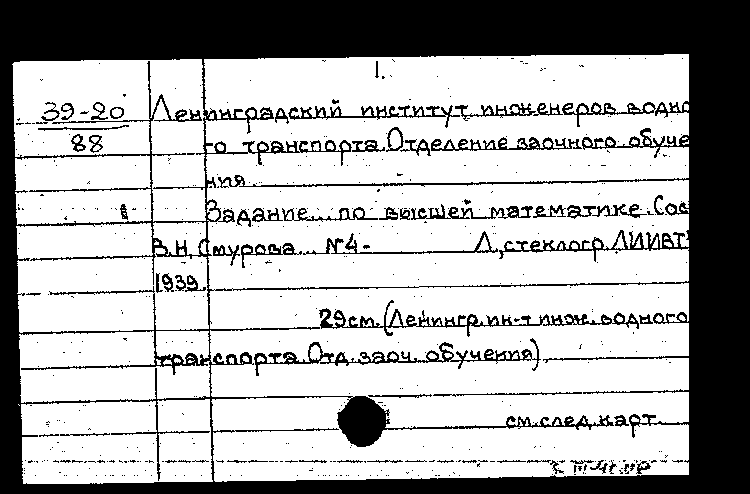 1.
39-20 Ленинградский институт инженеров водно
88 го транспорта. Отделение заочного обуче
ния.
Задание... по высшей математике. Сос
В.Н. Смурова... №4- Л., стеклогр. ЛИИВТ
1939.
29см. (Ленингр. ин-т инж. водного
транспорта. Отд. заоч. обучения).
см. след. карт.